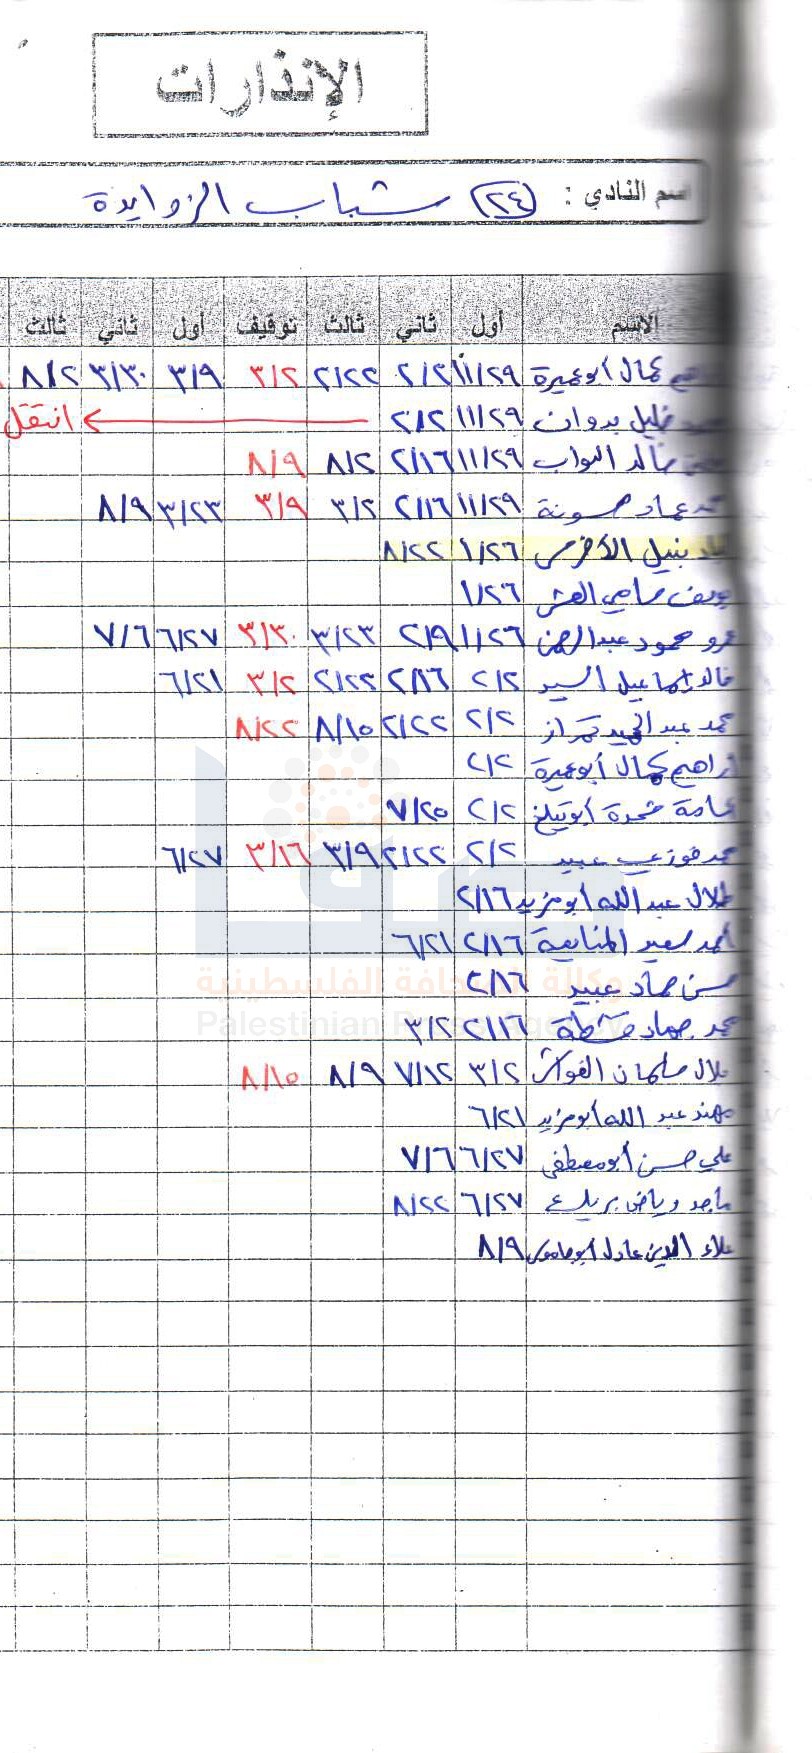 الإنذارات
اسم النادي : (٢٤) شباب الزوايدة
الاسم أول ثاني ثالث توقيف أول ثاني ثالث
كمال أبو عميرة ١١/٢٩ ٢/٢ ٢/٢٢ ٣/٢ ٣/٩ ٣/٣٠ ٨/٢
خليل بدوان ١١/٢٩ ٢/٢ انتقل
خالد النواب ١١/٢٩ ٢/١٦ ٨/٢ ٨/٩
عماد حسونة ١١/٢٩ ٢/١٦ ٣/٢ ٣/٩ ٣/٢٣ ٨/٩
نبيل الأخرس ١/٢٦ ٨/٢٢
يوسف سامي العش ١/٢٦
عمرو محمود عبدالرحمن ١/٢٦ ٢/٩ ٣/٢٣ ٣/٣٠ ٦/٢٧ ٧/٦
خالد إسماعيل السيد ٢/٢ ٢/١٦ ٢/٢٢ ٣/٢ ٦/٢١
محمد عبد الحميد تمراز ٢/٢ ٢/٢٢ ٨/١٥ ٨/٢٢
ابراهيم كمال أبو عميرة ٢/٢
أسامة ٢/٢ ٧/٢٥
محمد فوزي عبيد ٢/٢ ٢/٢٢ ٣/٩ ٣/١٦ ٦/٢٧
طلال عبد الله أبو مزيد ٢/١٦
أحمد سعيد المنايعة ٢/١٦ ٦/٢١
حسن حماد عبيد ٢/١٦
محمد جهاد ٢/١٦ ٣/٢
بلال سلمان ٣/٢ ٧/١٢ ٨/٩ ٨/١٥
مهند عبد الله أبو مزيد ٦/٢١
علي حسن أبو مصطفى ٦/٢٧ ٧/٦
ماجد رياض بريك ٦/٢٧ ٨/٢٢
علاء الدين عادل ٨/٩
صفا
وكالة الصحافة الفلسطينية
Palestinian Press Agency